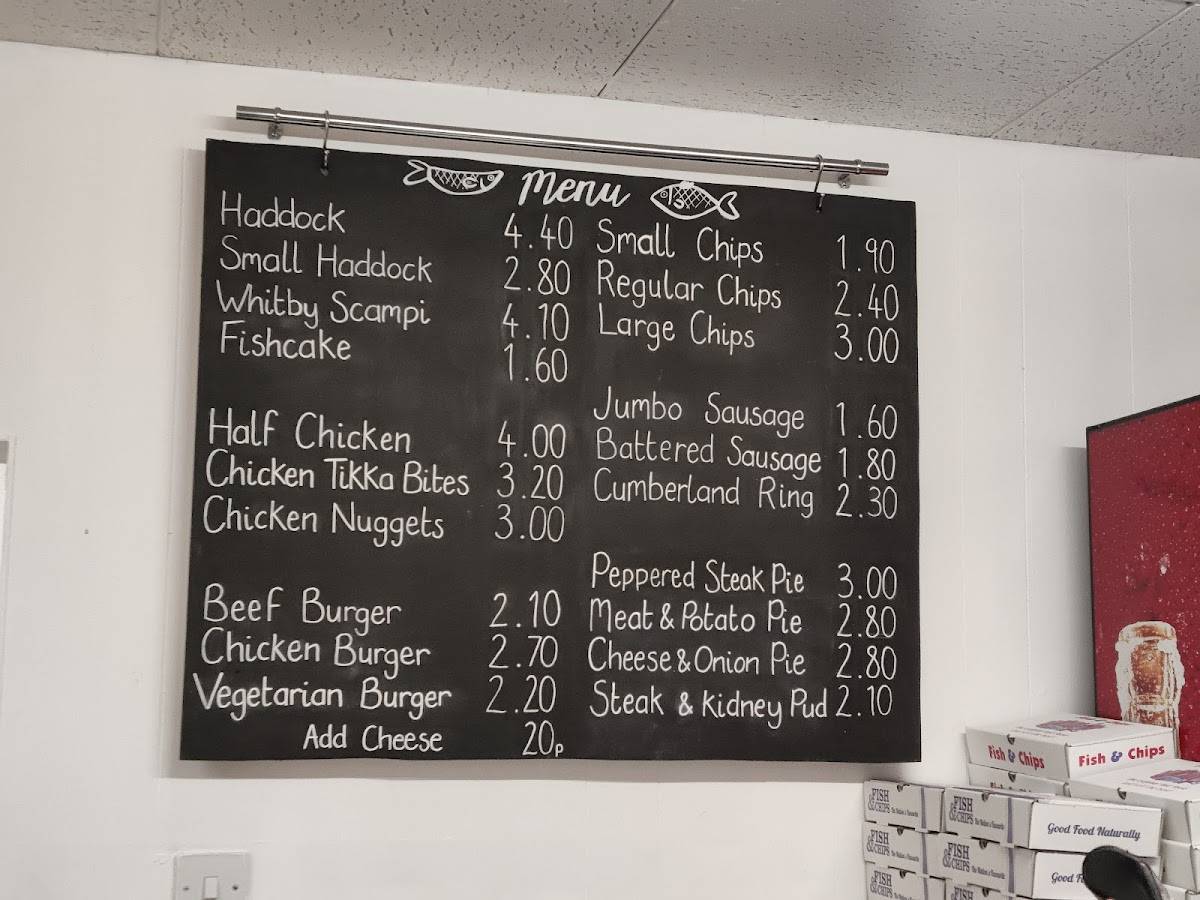 Menu
Haddock 4.40
Small Haddock 2.80
Whitby Scampi 4.10
Fishcake 1.60
Half Chicken 4.00
Chicken Tikka Bites 3.20
Chicken Nuggets 3.00
Beef Burger 2.10
Chicken Burger 2.70
Vegetarian Burger 2.20
Add Cheese 20p
Small Chips 1.90
Regular Chips 2.40
Large Chips 3.00
Jumbo Sausage 1.60
Battered Sausage 1.80
Cumberland Ring 2.30
Peppered Steak Pie 3.00
Meat & Potato Pie 2.80
Cheese & Onion Pie 2.80
Steak & Kidney Pud 2.10
Fish & Chips Fish & Chips
FISH & CHIPS
FISH & CHIPS
Good Food Naturally
FISH & CHIPS
FISH & CHIPS
Good
FISH & CHIPS
FISH